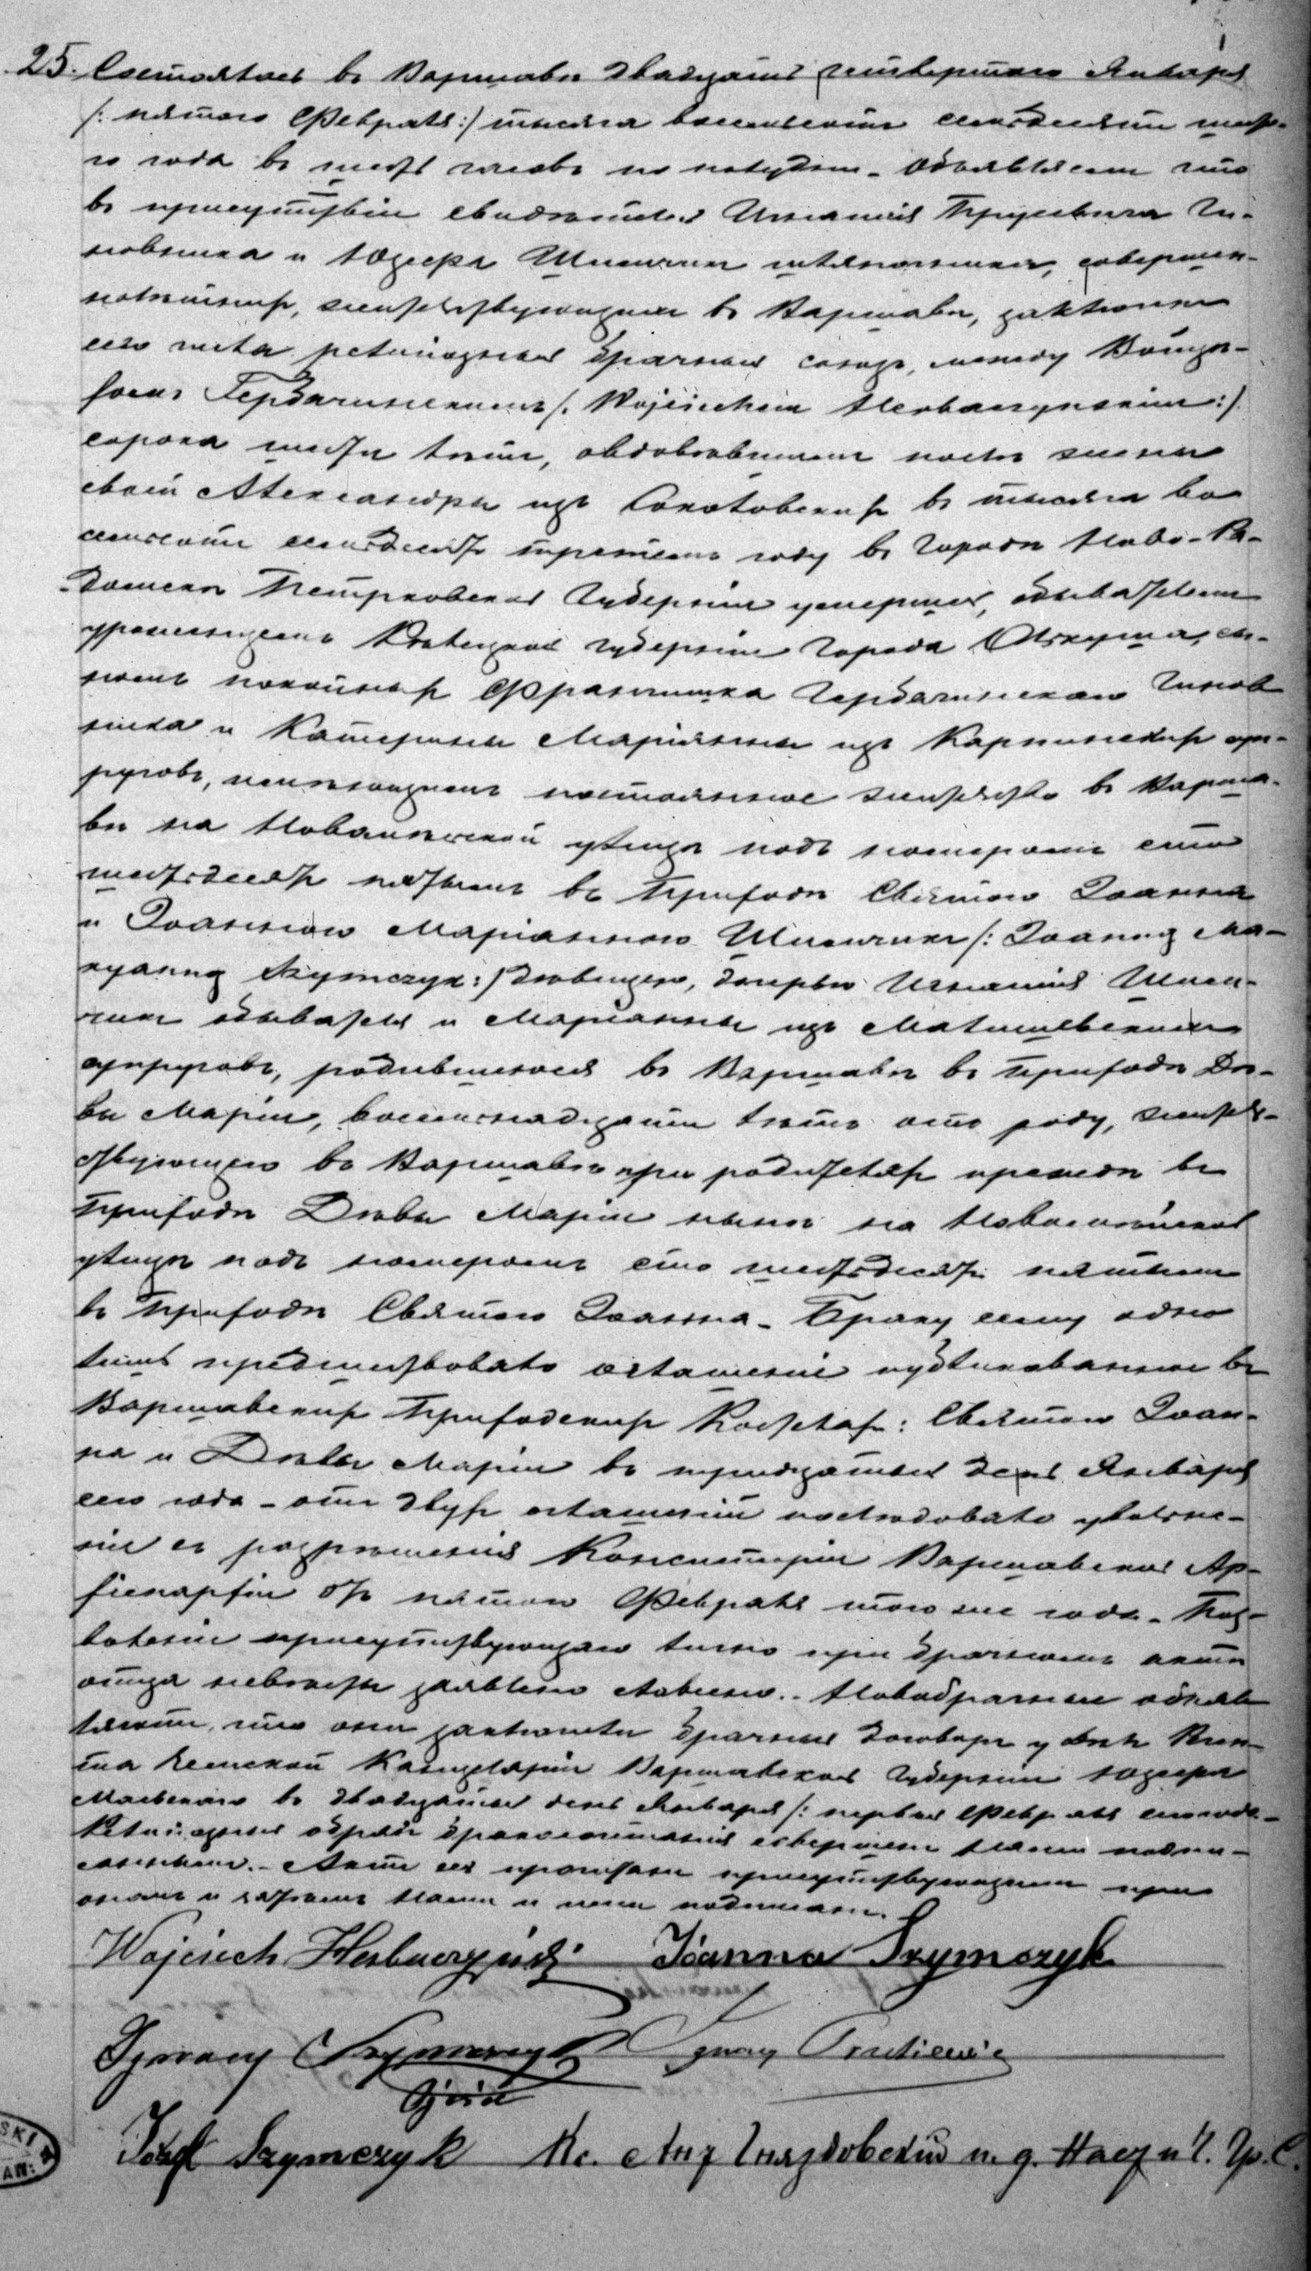 25. Состоялось въ Варшавѣ двадцать четвертаго Января
/: пятаго Февраля :/ тысяча восемьсотъ семьдесятъ шеста-
го года въ шесть часовъ по полудни. Объявляемъ что
въ присутствіи свидѣтелей Игнатія Чи-
новника и Юзефа Шимчика совершен-
нолѣтнихъ, жительствующихъ въ Варшавѣ, заключенъ
сего числа религіозный брачный союзъ, между Войцѣ-
хомъ Гербачинскимъ /: Wojciechem Herbaczyńskim :/
сорока шести лѣтъ, овдовѣвшимъ послѣ жены
своей Александры изъ Соколовскихъ въ тысяча во
семьсотъ семьдесятъ третьемъ году въ городѣ Ново-Ра-
домскѣ Петроковской Губерніи умершей, обывателемъ
урожденцемъ Кѣлецкой губерніи города Олькуша, сы-
номъ покойныхъ Францишка Гербачинскаго Чинов
ника и Катерины Маріянны изъ Карпинскихъ суп-
руговъ, имѣющимъ постоянное жительство въ Варша-
вѣ на улицѣ подъ номеромъ сто
шестьдесятъ пятымъ въ Приходѣ Святаго Іоанна
и Іоанною Маріанною Шимчикъ /: Joanną Ma-
ryanną Szymczyk :/ дѣвицею, дочерью Игнатія Шим-
чикъ обывателя и Маріанны изъ
супруговъ, родившеюся въ Варшавѣ въ Приходѣ Дѣ-
вы Маріи, восемнадцати лѣтъ отъ роду, житель-
ствующею въ Варшавѣ при родителяхъ прежде въ
Приходѣ Дѣвы Маріи нынѣ на
улицѣ подъ номеромъ сто шестьдесятъ пятымъ
въ Приходѣ Святаго Іоанна. Браку сему одно
лишь предшествовало оглашеніе публикованное въ
Варшавскихъ Приходскихъ Костелахъ: Святаго Іоан-
на и Дѣвы Маріи въ тридцатый день Января
сего года - отъ двухъ оглашеній послѣдовало уволне-
ніе съ разрѣшенія Консисторіи Варшавской Ар-
хіепархіи отъ пятаго Февраля того же года. Поз-
воленіе присутствующаго лично при брачномъ актѣ
отца невѣсты заявлено словесно. Новобрачные объяв
ляютъ, что они заключили брачный договоръ у
Земской Канцеляріи Варшавской Губерніи Юзефа
въ двадцатый день Января /: первый Февраля сего года.
Религіозный обрядъ бракосочетанія совершенъ Нами подпи-
саннымъ. Актъ сей прочитанъ присутствующимъ при
ономъ и затѣмъ Нами и ими подписанъ.
Wojciech Herbaczyński Joanna Szymczyk
Ignacy Szymczyk Ignacy
Ojciec
Józef Szymczyk Кс. Анд Гняздовскій и. д. Наст. и Ч. Гр. С.